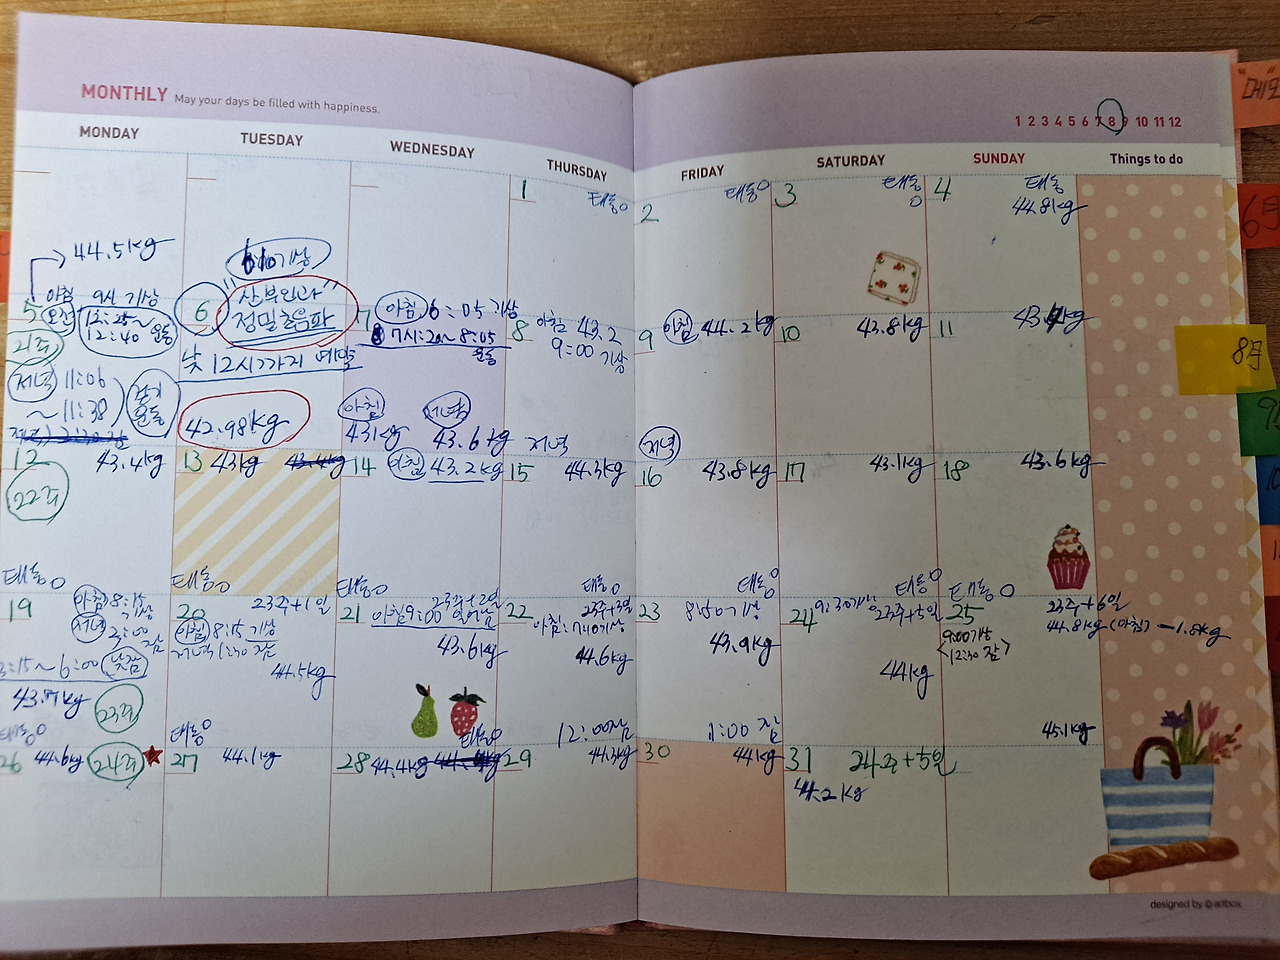 MONTHLY May your days be filled with happiness.
1 2 3 4 5 6 7 8 9 10 11 12
MONDAY
TUESDAY
WEDNESDAY
THURSDAY
FRIDAY
SATURDAY
SUNDAY
Things to do
1
태동o
2
태동o
3
태동
o
4
태동
44.8kg
44.5kg
아침 9시 기상
5
오전
12:25~
12:40 운동
21주
저녁 11:06
~11:38
걷기
운동
6:10기상
6
"산부인과"
정밀초음파
낮 12시까지
42.98kg
7
아침 6:05 기상
7시:20~8:05
운동
아침
43kg
저녁
43.6kg
8
아침 43.2
9:00 기상
저녁
9
아침 44.2kg
저녁
10
43.8kg
11
12
43.4kg
22주
13
43kg
14
아침 43.2kg
15
44.3kg
16
43.8kg
17
43.1kg
18
43.6kg
태동o
19
아침 8:15
기상
저녁
2:00
잠
3:15~6:00 낮잠
43.7kg
23주
태동o
20
23주+1일
아침 8:15 기상
저녁 1:30 잠
44.5kg
태동o
21
23주+2일
아침9:00 일어남
43.6kg
태동o
22
23주+3일
아침:7:40기상
44.6kg
12:00잠
태동o
23
8:50기상
43.9kg
1:00 잠
태동o
24
9:30기상
23주+5일
44kg
태동o
25
23주+6일
9:00기상
<12:30 잠>
44.8kg(아침) -1.8kg
45.1kg
태동o
26
44.6kg
24주
태동o
27
44.1kg
태동o
28
44.4kg
29
44.3kg
30
44kg
31
24주+5일
44.2kg
6月
8月
designed by @artbox